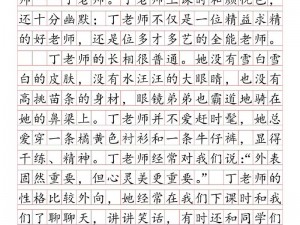 师。丁老师上课时和颜悦色，
还十分幽默；丁老师不仅是一位精益求精
的好老师，还是位多才多艺的全能老师。
丁老师的长相很普通。她没有雪白雪
白的皮肤，没有水汪汪的大眼睛，也没有
高挑苗条的身材，眼镜弟弟也霸道地骑在
她的鼻梁上。丁老师并不爱赶时髦，她总
爱穿一条橘黄色衬衫和一条牛仔裤，显得
干练、精神。丁老师经常对我们说：“外表
固然重要，但心灵美更重要。”丁老师的
性格比较外向，她经常在我们下课时和我
们了聊聊天，讲讲笑话，有时还和同学们